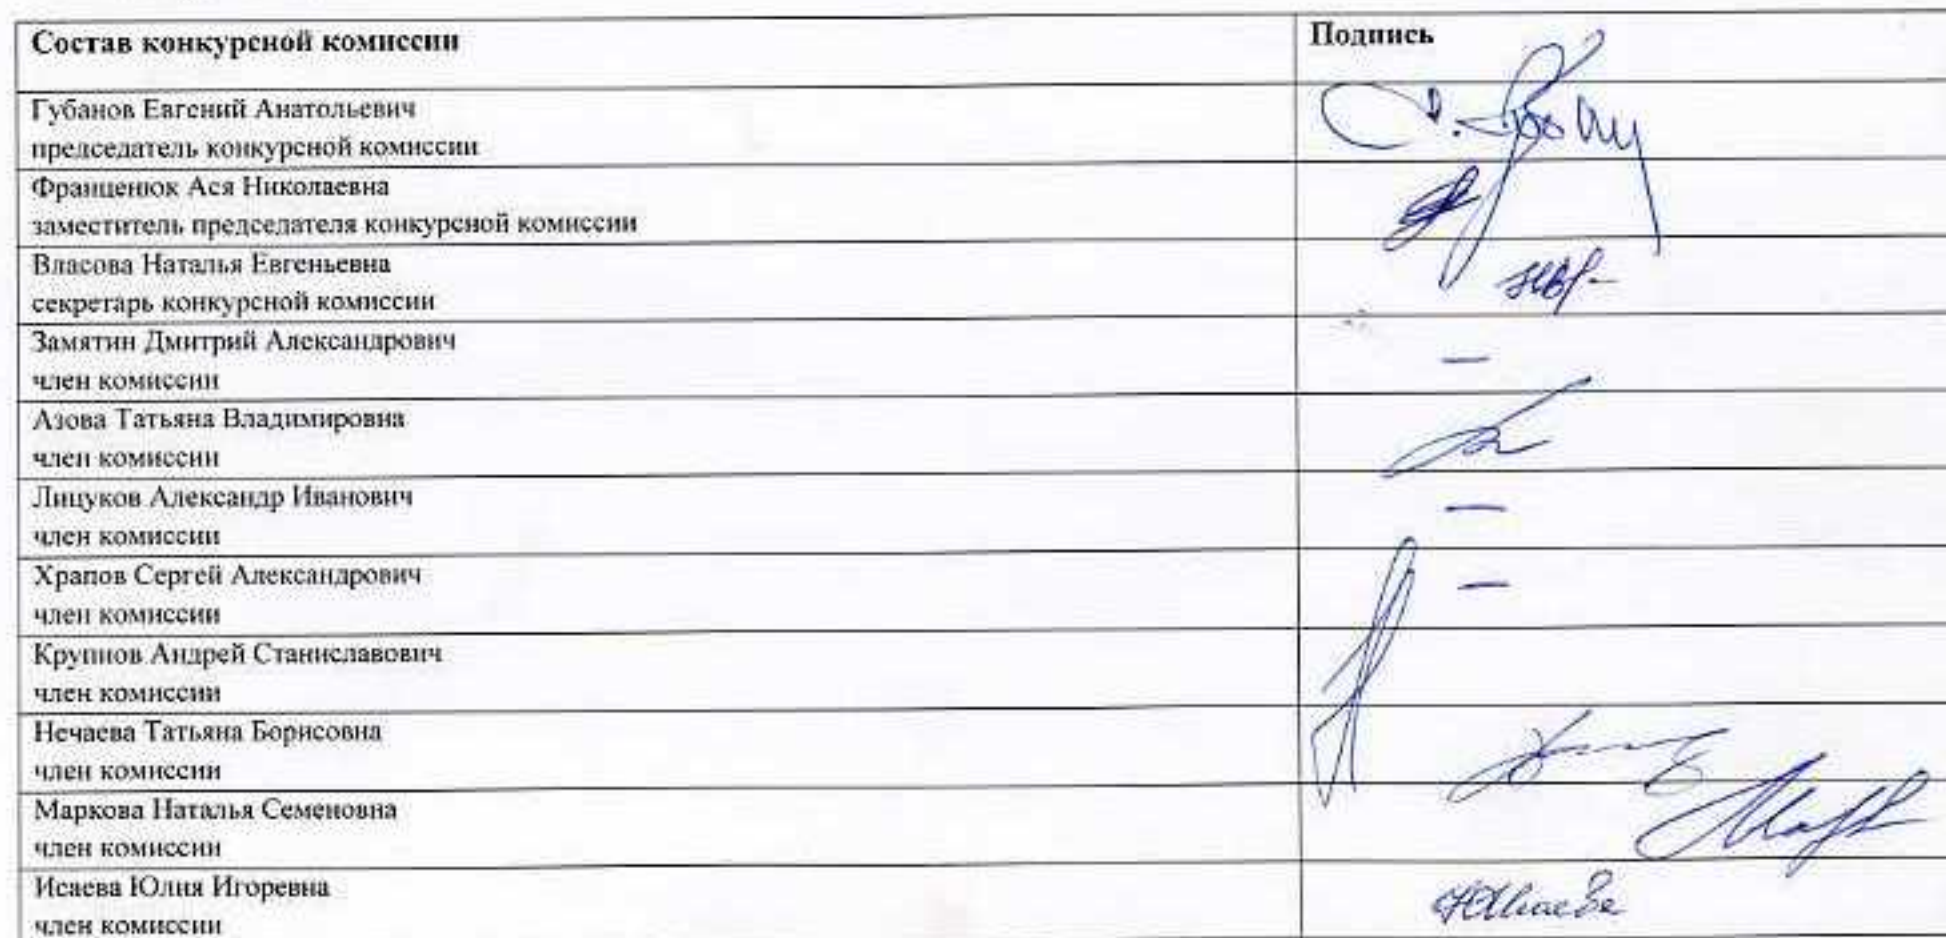 Состав конкурсной комиссии
Подпись
Губанов Евгений Анатольевич
председатель конкурсной комиссии
Франценюк Ася Николаевна
заместитель председателя конкурсной комиссии
Власова Наталья Евгеньевна
секретарь конкурсной комиссии
Замятин Дмитрий Александрович
член комиссии
–
Азова Татьяна Владимировна
член комиссии
Лицуков Александр Иванович
член комиссии
–
Храпов Сергей Александрович
член комиссии
–
Крупнов Андрей Станиславович
член комиссии
Нечаева Татьяна Борисовна
член комиссии
Маркова Наталья Семеновна
член комиссии
Исаева Юлия Игоревна
член комиссии